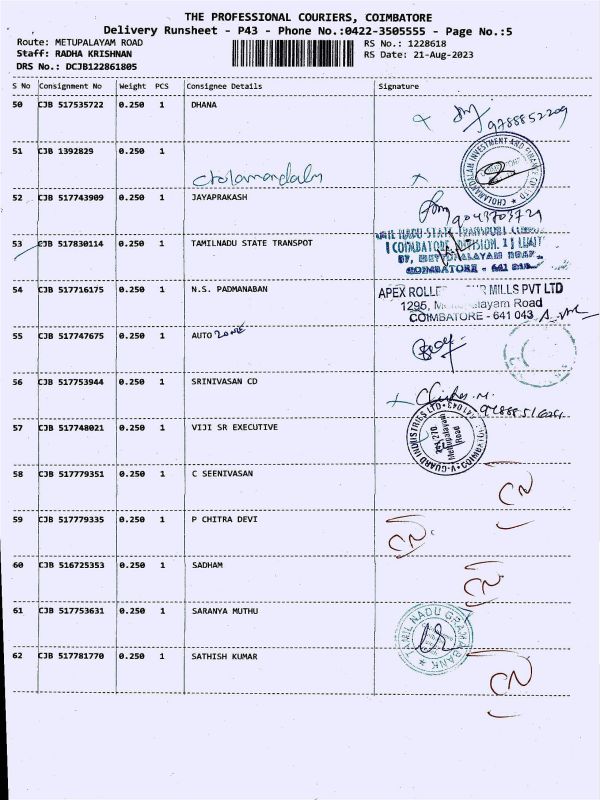 THE PROFESSIONAL COURIERS, COIMBATORE
Delivery Runsheet - P43 - Phone No.:0422-3505555 - Page No.:5
Route: METUPALAYAM ROAD RS No.: 1228618
Staff: RADHA KRISHNAN RS Date: 21-Aug-2023
DRS No.: DCJB122861805
S No Consignment No Weight PCS Consignee Details Signature
50 CJB 517535722 0.250 1 DHANA
9788852209
51 CJB 1392829 0.250 1
Cholamandalm
CHOLAMANDALAM INVESTMENT AND FINANCE CO LTD
52 CJB 517743909 0.250 1 JAYAPRAKASH
9043703729
53 CJB 517830114 0.250 1 TAMILNADU STATE TRANSPOT
COIMBATORE DIVISION
COIMBATORE - 641
54 CJB 517716175 0.250 1 N.S. PADMANABAN
APEX ROLLE MILLS PVT LTD
1295, alayam Road
COIMBATORE - 641 043
55 CJB 517747675 0.250 1 AUTO zone
56 CJB 517753944 0.250 1 SRINIVASAN CD
57 CJB 517748021 0.250 1 VIJI SR EXECUTIVE
V-GUARD INDUSTRIES LTD
Mettupalayam
Road
58 CJB 517779351 0.250 1 C SEENIVASAN
CN
59 CJB 517779335 0.250 1 P CHITRA DEVI
CN
60 CJB 516725353 0.250 1 SADHAM
CN
61 CJB 517753631 0.250 1 SARANYA MUTHU
TAMIL NADU GRAMA BANK
62 CJB 517781770 0.250 1 SATHISH KUMAR
CN